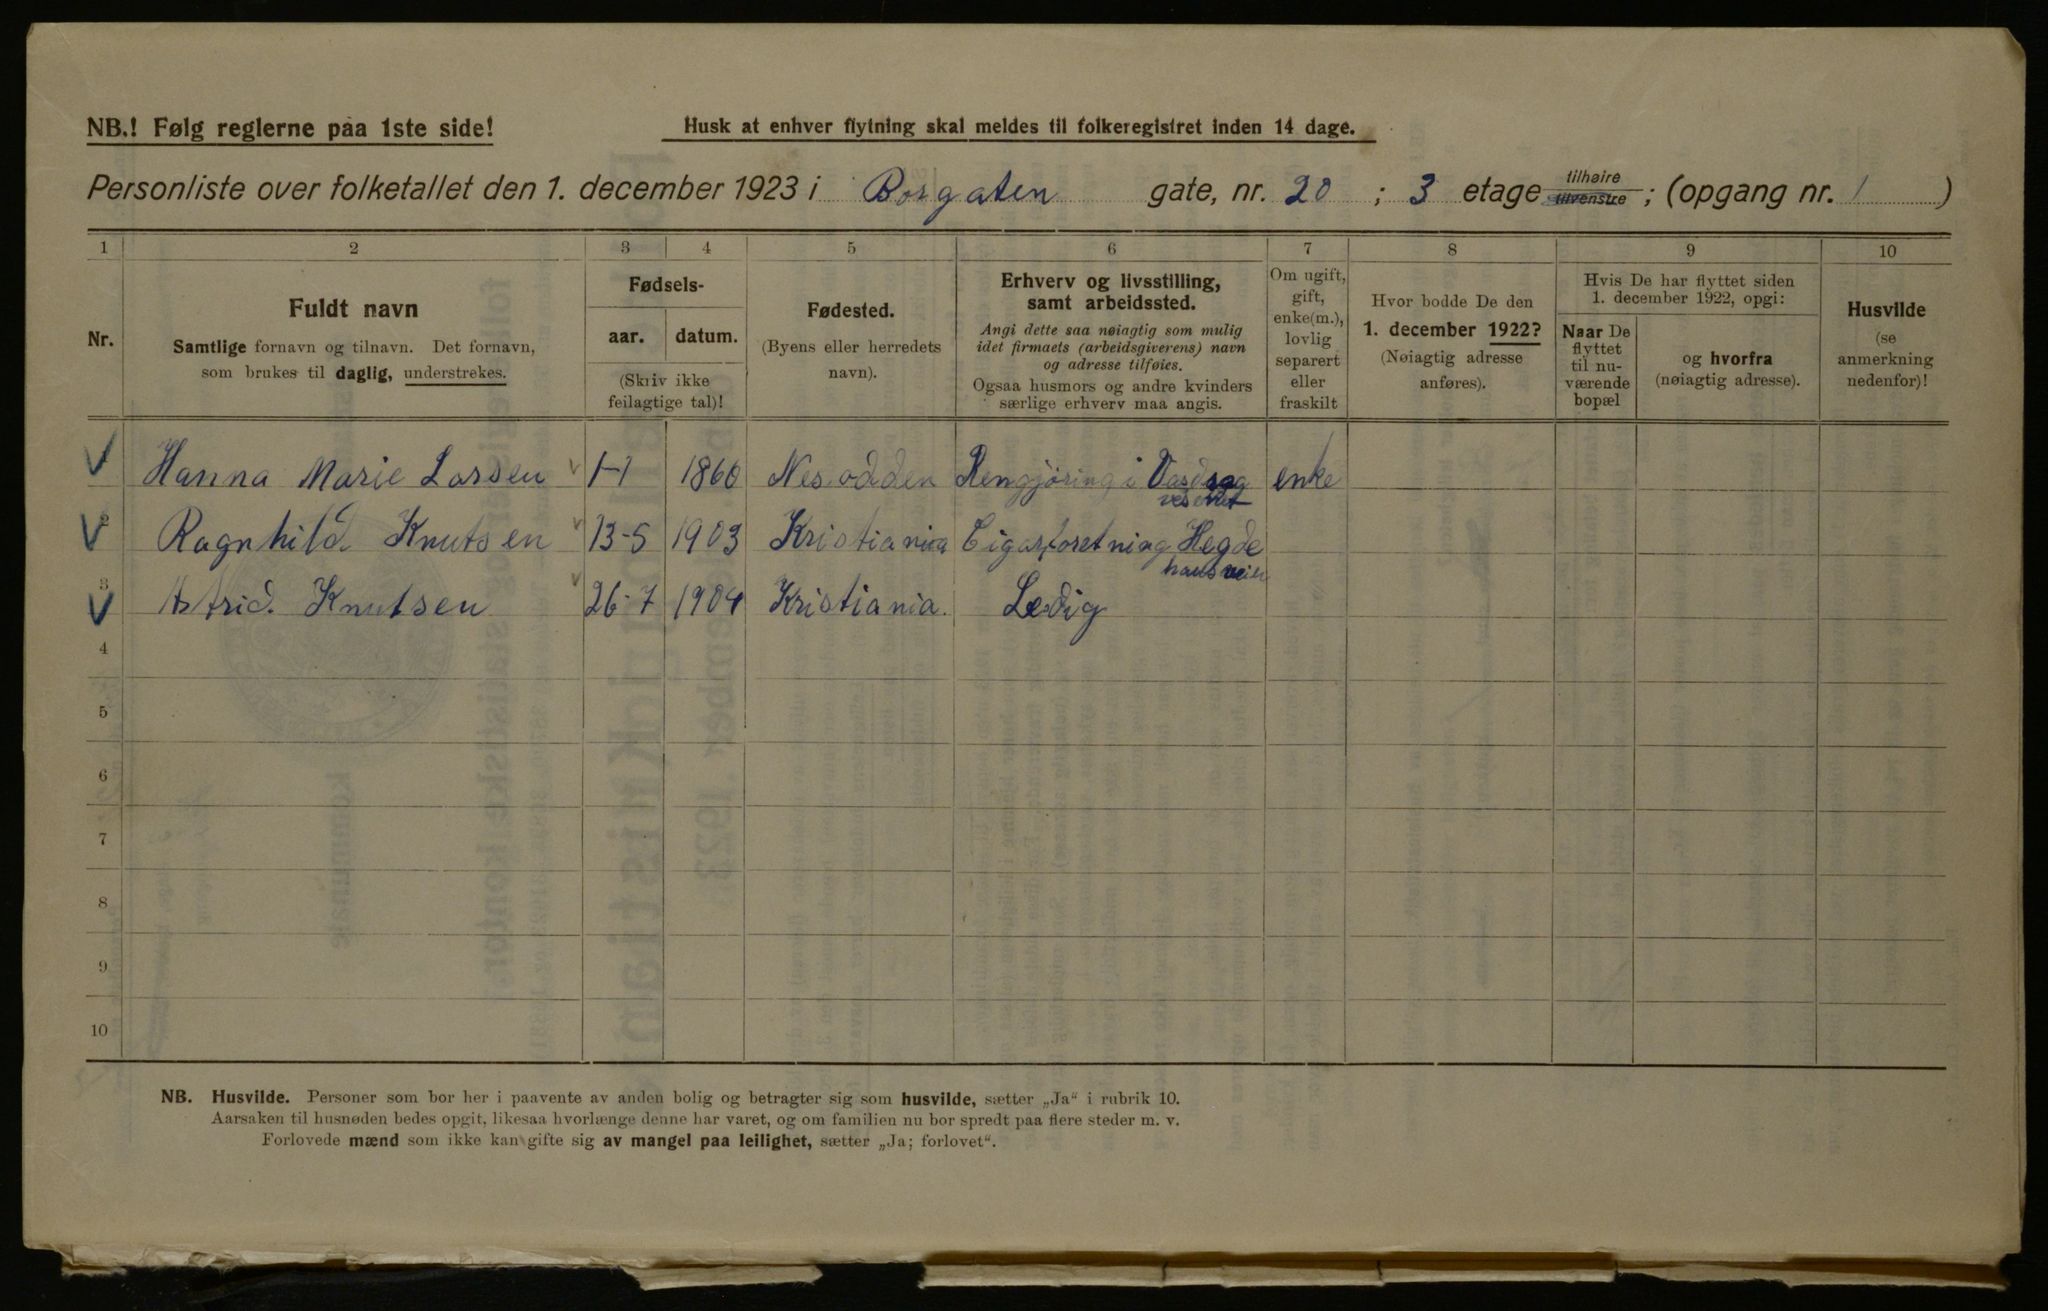 NB.! Følg reglerne paa 1ste side!
Husk at enhver flytning skal meldes til folkeregistret inden 14 dage.
Personliste over folketallet den 1. december 1923 i Borgaten gate, nr. 20 ; 3 etage tilhøire tilvenstre ; (opgang nr. 1 )
1 2 3 4 5 6 7 8 9 10
Nr.
Fuldt navn
Samtlige fornavn og tilnavn. Det fornavn,
som brukes til daglig, understrekes.
Fødsels-
aar. datum.
(Skriv ikke
feilagtige tal)!
Fødested.
(Byens eller herredets
navn).
Erhverv og livsstilling,
samt arbeidssted.
Angi dette saa nøiagtig som mulig
idet firmaets (arbeidsgiverens) navn
og adresse tilføies.
Ogsaa husmors og andre kvinders
særlige erhverv maa angis.
Om ugift,
gift,
enke(m.),
lovlig
separert
eller
fraskilt
Hvor bodde De den
1. december 1922?
(Nøiagtig adresse
anføres).
Hvis De har flyttet siden
1. december 1922, opgi:
Naar De
flyttet
til nu-
værende
bopæl
og hvorfra
(nøiagtig adresse).
Husvilde
(se
anmerkning
nedenfor)!
Hanna Marie Larsen 1-1 1860 Nesodden Rengjøring i enke
vesenet
2 Ragnhild Knutsen 13-5 1903 Kristiania Cigarforetning Hegde
hausveien
3 Astrid. Knutsen 26-7 1904 Kristiania. Ledig
4
5
6
7
8
9
10
NB. Husvilde. Personer som bor her i paavente av anden bolig og betragter sig som husvilde, sætter „Ja“ i rubrik 10.
Aarsaken til husnøden bedes opgit, likesaa hvorlænge denne har varet, og om familien nu bor spredt paa flere steder m. v.
Forlovede mænd som ikke kan gifte sig av mangel paa leilighet, sætter „Ja; forlovet“.